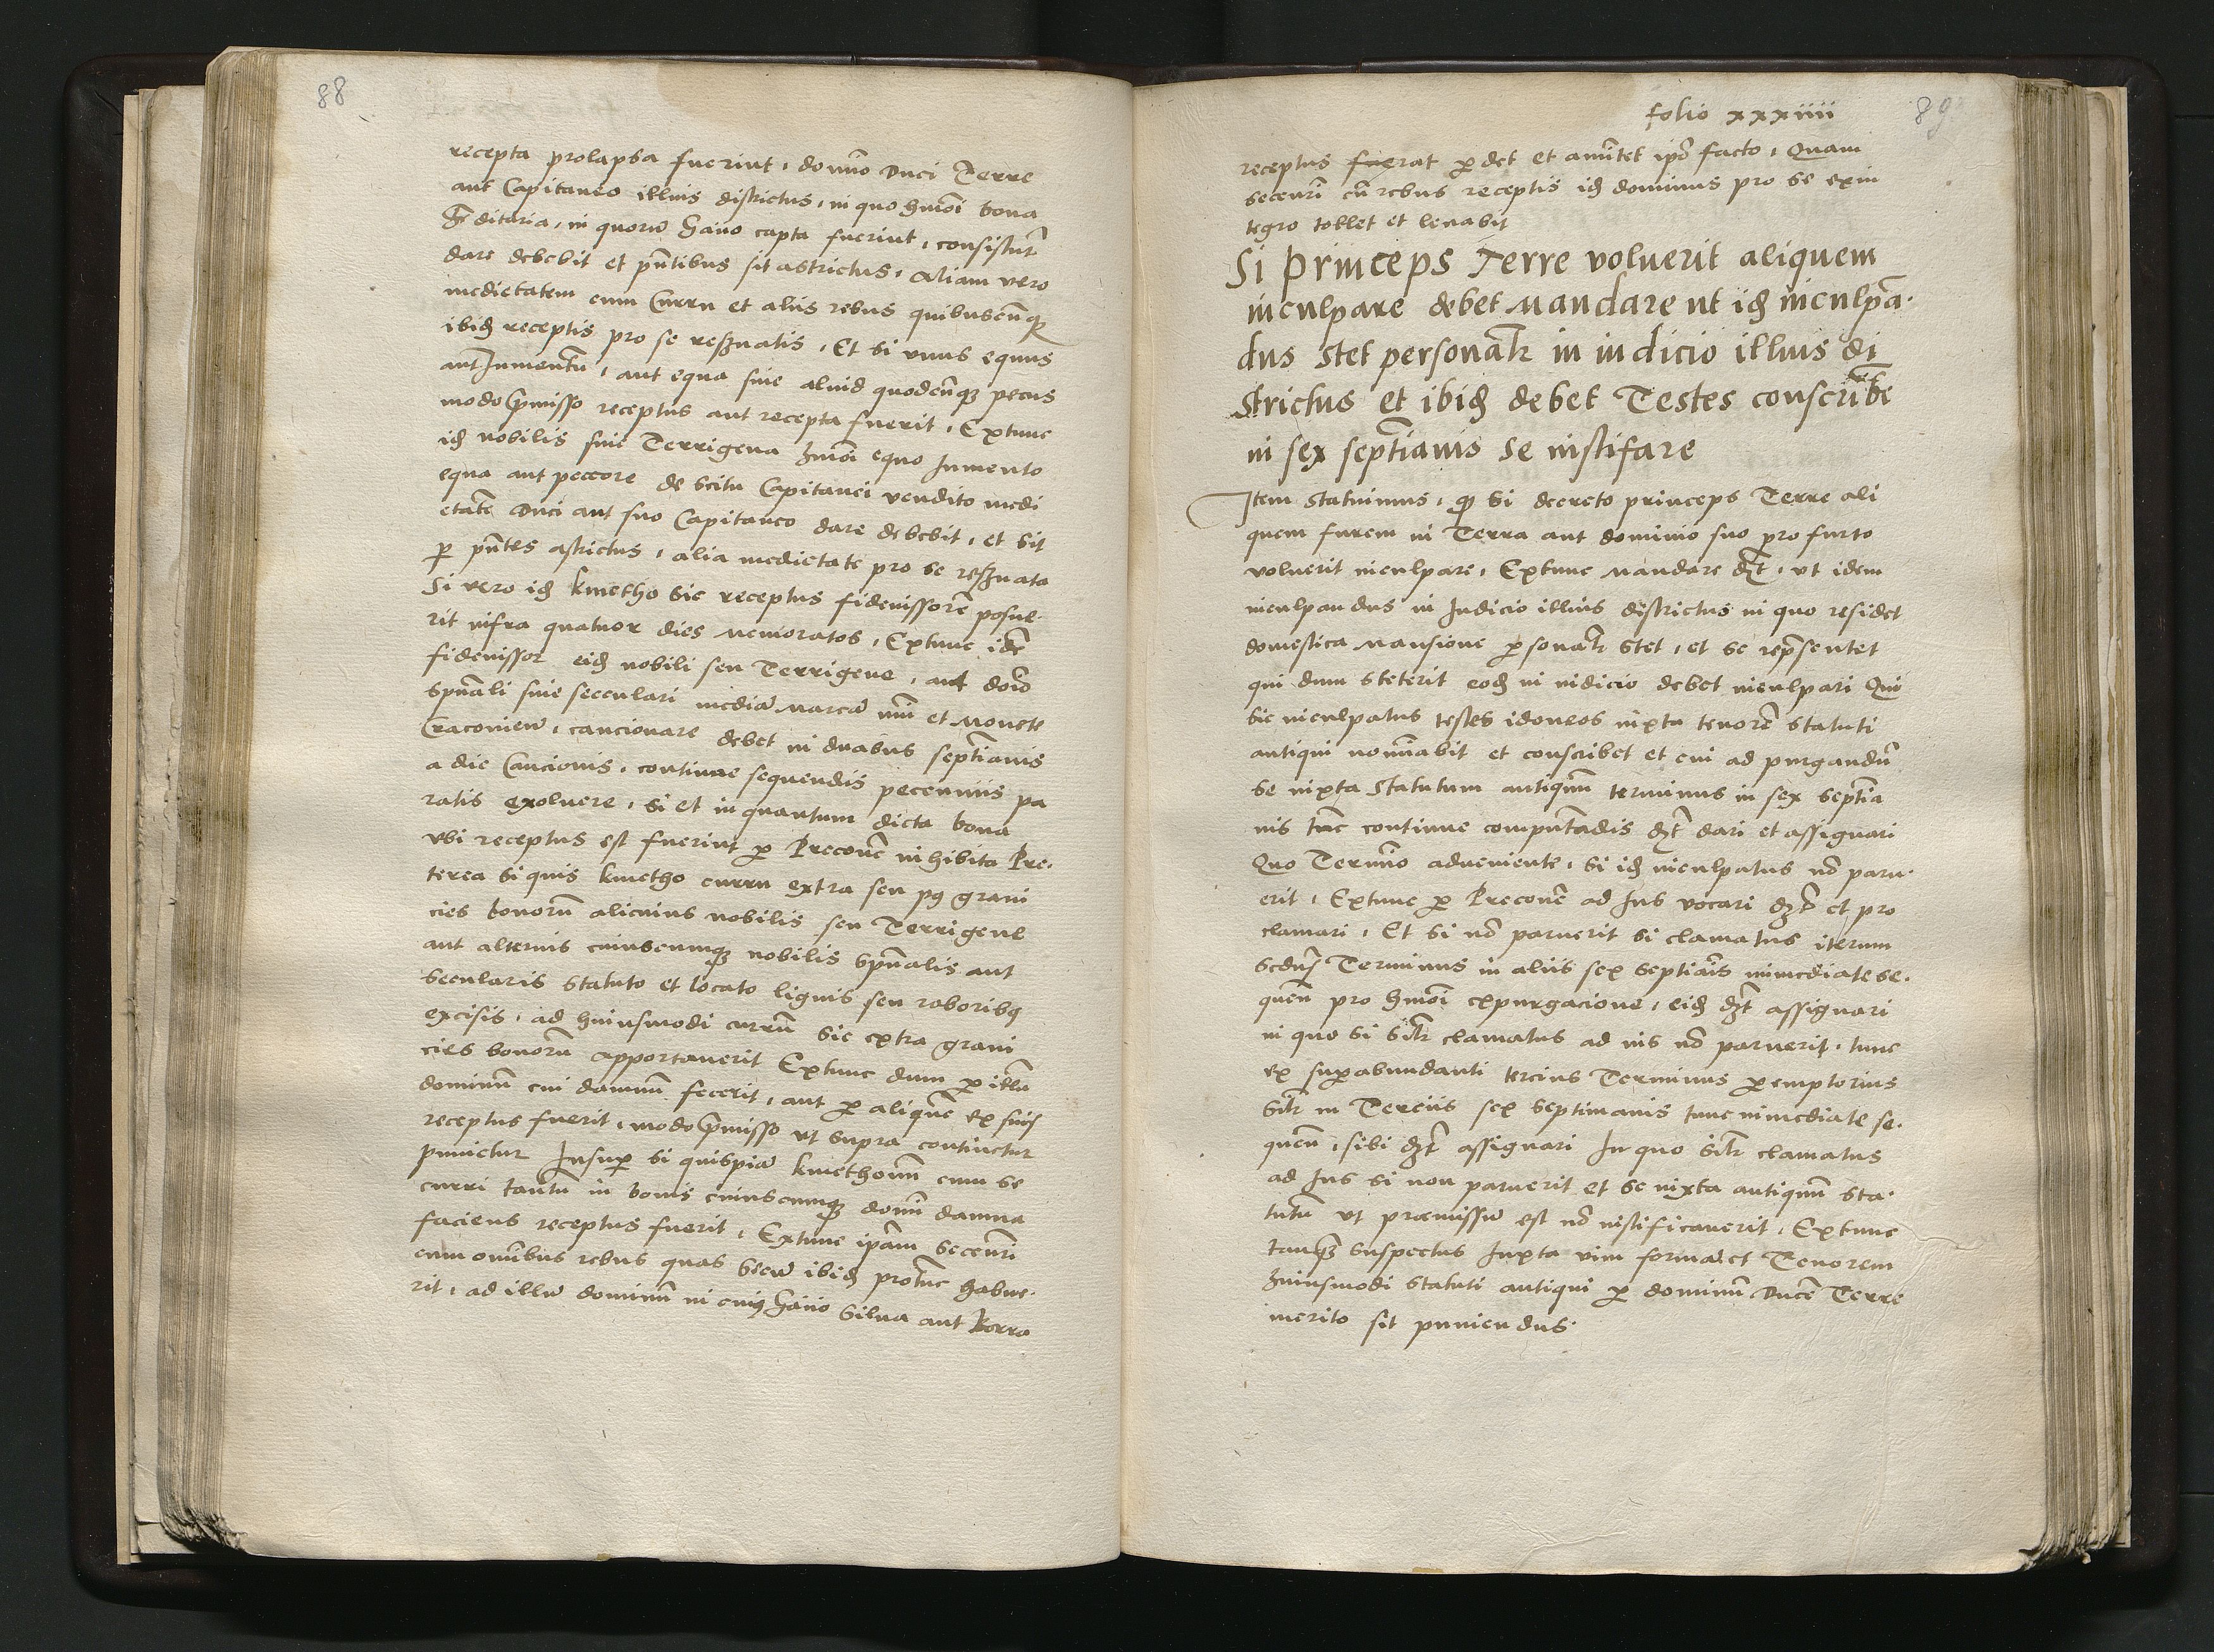 88
recepta prolapsa fuerint, domno Duci Terre
aut Capitaneo illius districtus, in quo hmoi bona
hereditaria, in quorum Gaio capta fuerint, consistunt
dare debebit et pntibus sit astrictus, Aliam vero
medietatem cum Curru et aliis rebus quibuscunq
ibid receptis pro se reservatis, Et si unus equus
aut Jumentu, aut equa sive aliud quodcunq pecus
modo pmisso receptus aut recepta fuerit, Extunc
id nobilis sive Terrigena hmoi equo Jumento
equa aut peccore de scitu Capitanei vendito medi
etate Duci aut suo Capitaneo dare debebit, et sit
p pntes astrictus, alia medietate pro se reservata
Si vero id kmetho sic receptus fideiussore posue-
rit infra quatuor dies memoratos, Extunc ide
fideiussor eid nobili seu Terrigene, aut domo
spuali sive seculari media marca mu et Monete
Cracovien, caucionare debet in duabus septianis
a die Caucionis, continue sequendis peccuniis pa
ratis exoluere, Si et in quantum dicta bona
ubi receptus est fuerint p Precone inhibita Pre-
terea si quis kmetho curru extra seu pq grani
cies bonoru alicuius nobilis seu Terrigene
aut alterius cuiuscumq nobilis spualis aut
secularis statuto et locato lignis seu roboribq
excisis, ad huiusmodi currum sic extra grani
cies bonoru apportauerit Extunc dum p illu
dominu cui damnu fecerit, aut p aliquem ex suis
receptus fuerit, modo pmisso ut supra continetur
punietur Insup si quispia kmethonu cum se
curri tantu in bonis cuiuscumq domi damna
faciens receptus fuerit, Extunc ipam securi
cum omibus rebus quas secu ibid protunc habue-
rit, ad illu dominu in cuiq Gaio silva aut Borra
folio xxxiiii
89
receptus fuerat pdet et amittet ipo facto, Quam
securi cu rebus receptis id dominus pro se exin
tegro tollet et levabit
Si princeps Terre voluerit aliquem
inculpare debet Mandare ut id inculpa-
dus stet personalr in iudicio illius di
strictus et ibid debet Testes conscribe
in sex septianis se iustifare
Item statuimus, q si decreto princeps Terre ali
quem furem in Terra aut dominio suo pro furto
voluerit inculpare, Extunc Mandare dzt, ut idem
inculpandus in Iudicio illius districtus in quo residet
domestica Mansione psonalr stet, et se repsentet
qui dum steterit eod in iudicio debet inculpari Qui
sic inculpatus testes idoneos iuxta tenore statuti
antiqui nominabit et conscribet et cui ad purgandu
se iuxta statutum antiquu terminus in sex septia
nis tuc continue computadis dzt dari et assignari
Quo Termino adveniente, si id inculpatus no paru-
erit, Extunc p Precone ad Ius vocari dzt et pro
clamari, Et si no paruerit si clamatus iterum
scdus Terminus in aliis sex septianis immediate se-
quen pro hmoi expurgacione, eid dzt assignari
in quo si silr clamatus ad ius no paruerit, tunc
ex supabundanti tercius Terminus pemptorius
silr in Terciis sex septimanis tunc immediate se-
quen, sibi dzt assignari In quo silr clamatus
ad Ius si non paruerit et se iuxta antiquu sta-
tutu ut praemissu est no iustificauerit, Extunc
tanq suspectus Iuxta vim forma et Tenorem
huiusmodi statuti antiqui p dominu Duce Terre
merito sit puniendus.